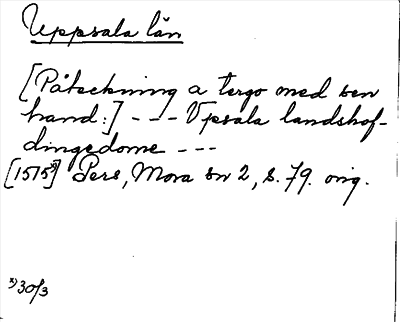 Uppsala län
[Påteckning a tergo med sen
hand:] - - - Vpsala landshof-
dingedome - - -
[1575x)] Pers, Mora sn 2, s. 79. orig.
x) 30/3